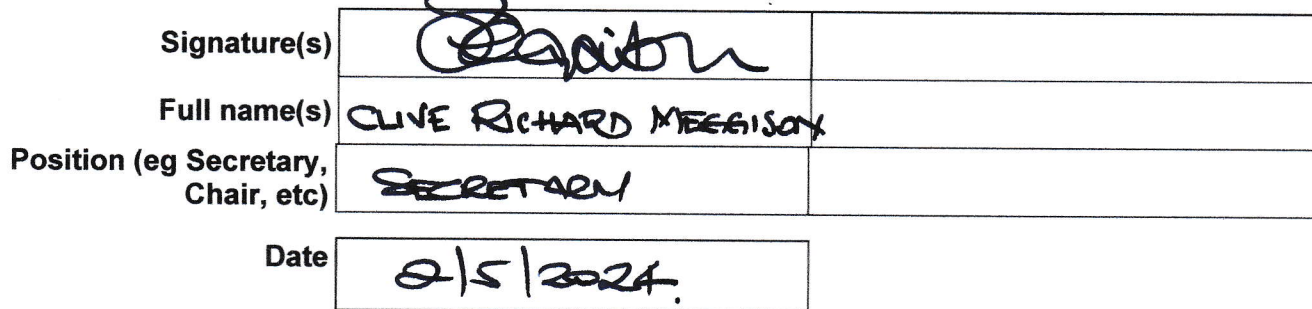 Signature(s)
Full name(s) CLIVE RICHARD MEGGISON
Position (eg Secretary,
Chair, etc) SECRETARY
Date 2/5/2024.